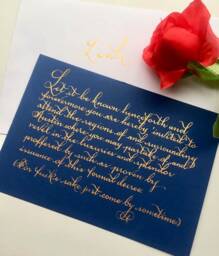 Leah
Let it be known henceforth and
forevermore you are hereby invited to
attend the regions of and surrounding
Austin where you may partake of and
revel in the luxuries and splendor
proffered by such as proven by
issuance of this formal decree
sake just come by sometime)